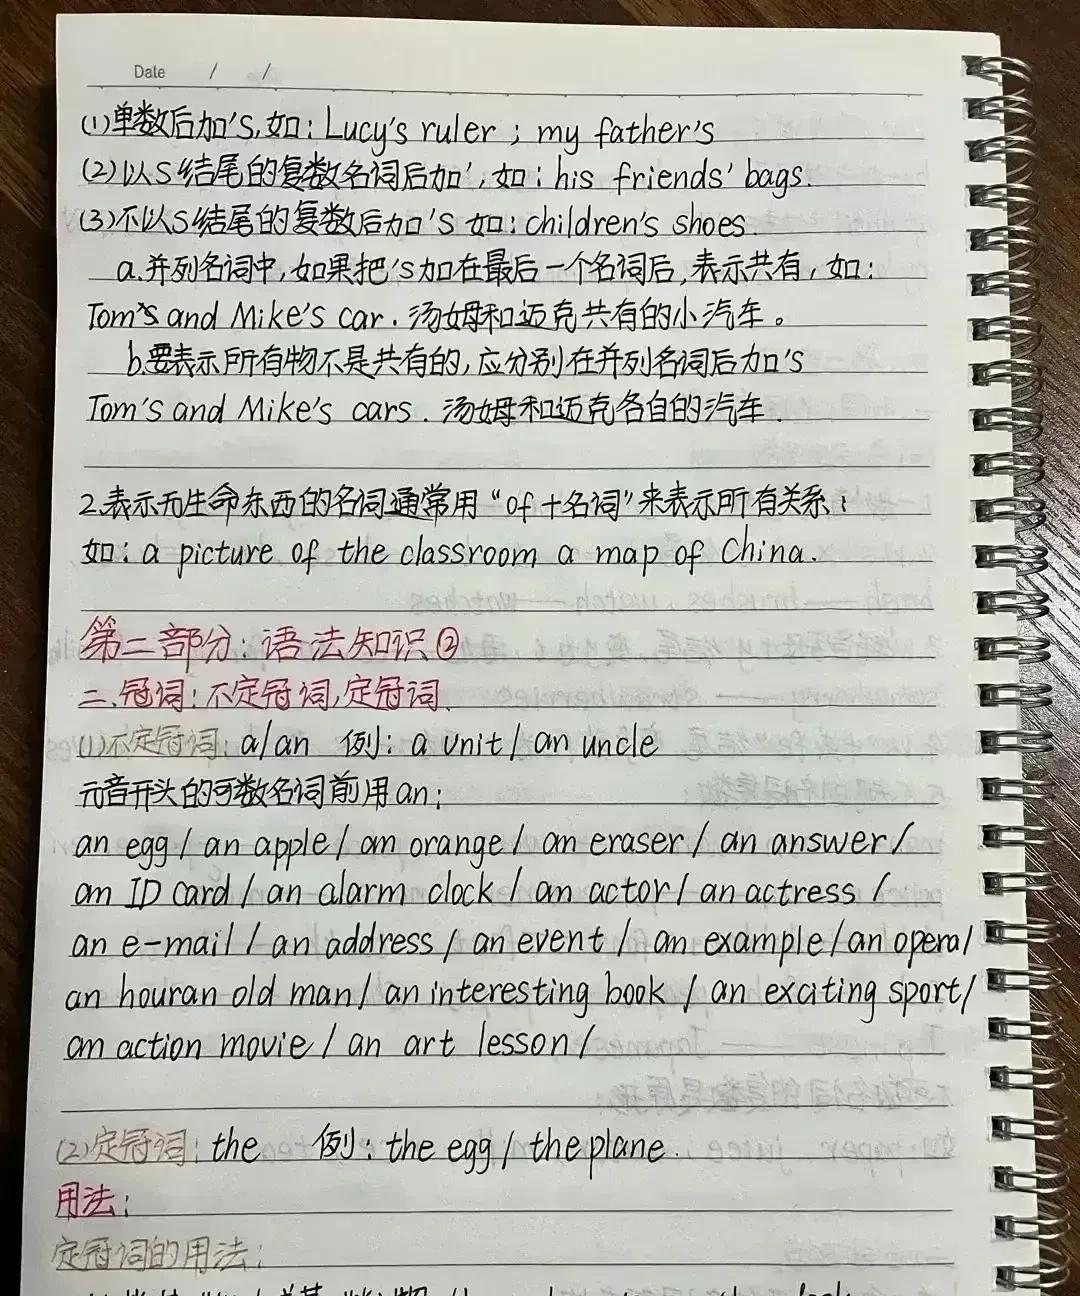 Date / /
(1)单数后加's,如: Lucy's ruler ; my father's
(2)以S结尾的复数名词后加',如: his friends' bags.
(3)不以S结尾的复数后加's 如: children's shoes.
a.并列名词中,如果把's加在最后一个名词后,表示共有,如:
Tom's and Mike's car. 汤姆和迈克共有的小汽车。
b.要表示所有物不是共有的,应分别在并列名词后加's
Tom's and Mike's cars. 汤姆和迈克各自的汽车.
2.表示无生命东西的名词通常用“of+名词”来表示所有关系:
如: a picture of the classroom a map of China.
第二部分:语法知识②
二.冠词:不定冠词,定冠词.
(1)不定冠词: a/an 例: a unit/ an uncle
元音开头的可数名词前用an:
an egg/ an apple/ an orange/ an eraser/ an answer/
an ID card/ an alarm clock/ an actor/ an actress/
an e-mail/ an address/ an event/ an example/ an opera/
an houran old man/ an interesting book / an exciting sport/
an action movie/ an art lesson/
(2)定冠词: the 例: the egg/ the plane.
用法:
定冠词的用法: